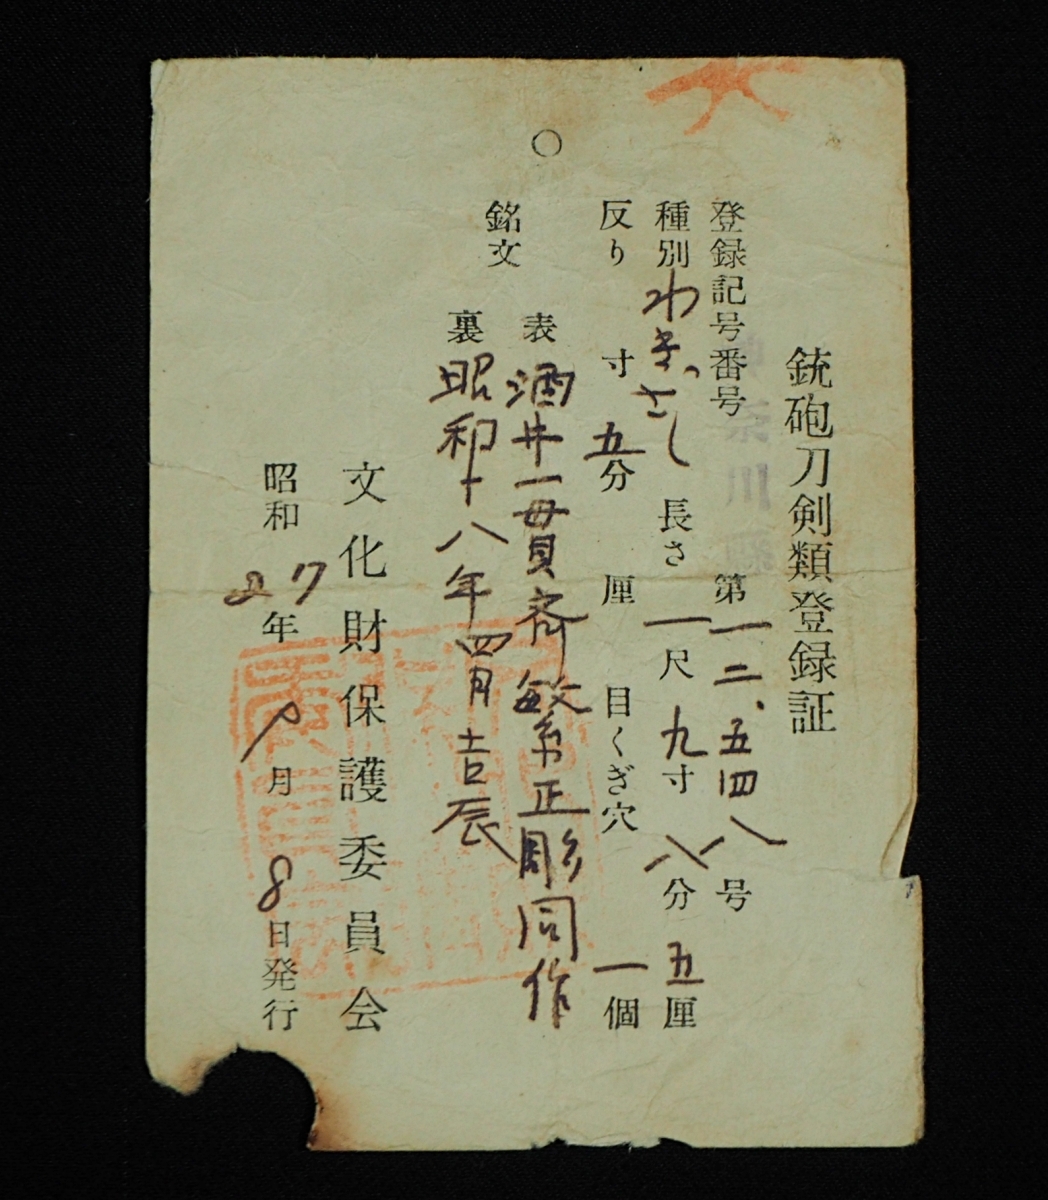 銃砲刀剣類登録証
登録記号番号 第一二、五四八号
種別わきざし 長さ一尺九寸八分五厘
反り 寸五分 厘 目くぎ穴 一個
銘文
表 酒井一貫斎繁正彫同作
裏 昭和十八年四月吉辰
文化財保護委員会
昭和27年 月8日発行